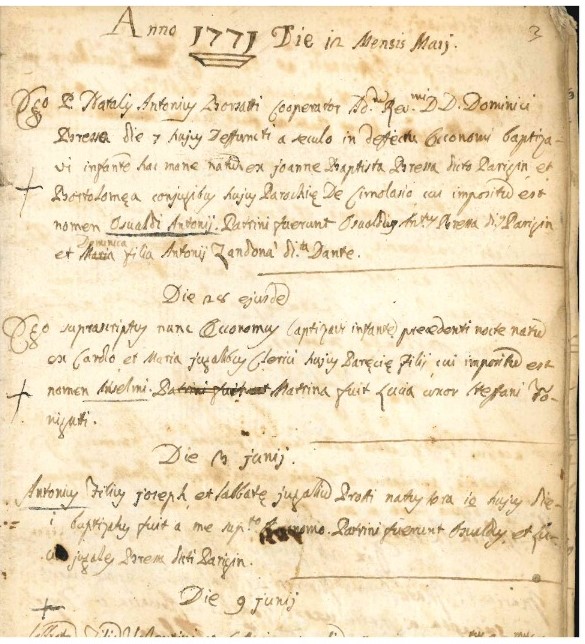 3
Anno 1771 Die 12 Mensis Maij.
Ego P. Natalis Antonius Borsatti Cooperator Ad.m Rev.mi D. D. Dominici
Bressa die 7 hujus deffuncti a seculo in deffectu Economi baptiza-
vi infante hac mane natu ex Joanne Baptista Bressa dicto Parigin et
Bortolomea conjugibus hujus Parochię De Cirvolasio cui impositu est
nomen Osualdi Antonij. Patrini fuerunt Osualdus Bressa di.to Parigin
Dominica
et Maria filia Antonij Zandonà di.ta Dante.
Die 28 ejusdē
Ego suprascriptus nunc Economus baptizavi infantē precedenti nocte natu
ex Carolo et Maria jugalibus hujus Paręcię filij cui impositu est
nomen Anselmi. Patrini fuit Matrina fuit Lucia uxor Steffani To-
niguti.
Die 3 junij.
Antonius Filius Joseph et jugaliu Protti natus hora hujus die-
i baptizatus fuit a me sup.to Economo. Patrini fuerunt Osualdus et Lu-
cia jugales Bressa dicti Parigin.
Die 9 junij